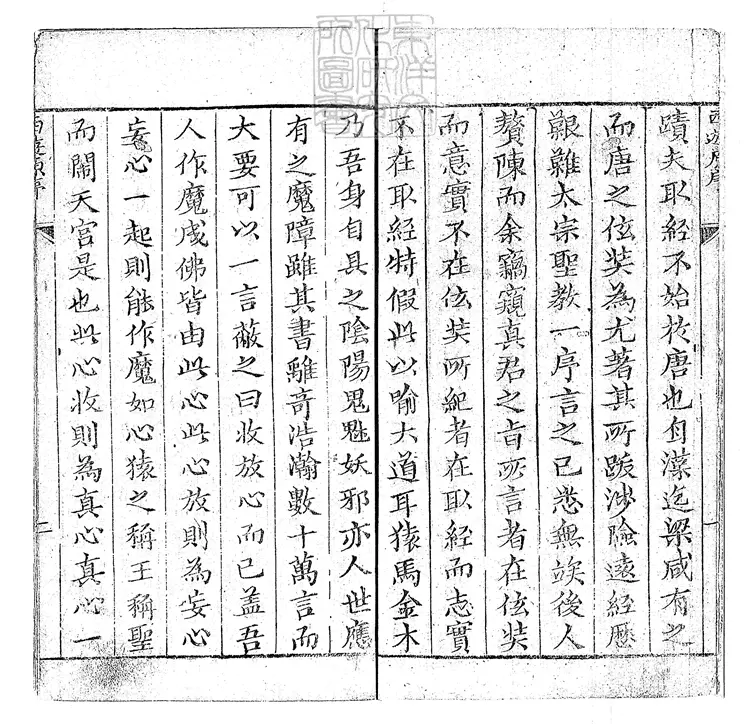 西遊原序
一
蹟夫取經不始於唐也自漢迄梁咸有之
而唐之伭奘為尤著其所跋涉險遠經歷
艱難太宗聖教一序言之已悉無竢後人
贅陳而余竊窺真君之旨所言者在伭奘
而意實不在伭奘所紀者在取經而志實
不在取經特假此以喻大道耳猿馬金木
乃吾身自具之陰陽鬼魅妖邪亦人世應
有之魔障雖其書離奇浩瀚數十萬言而
大要可以一言蔽之曰收放心而已蓋吾
人作魔成佛皆由此心此心放則為妄心
妄心一起則能作魔如心猿之稱王稱聖
而鬧天宮是也此心收則為真心真心一
西遊原序
二